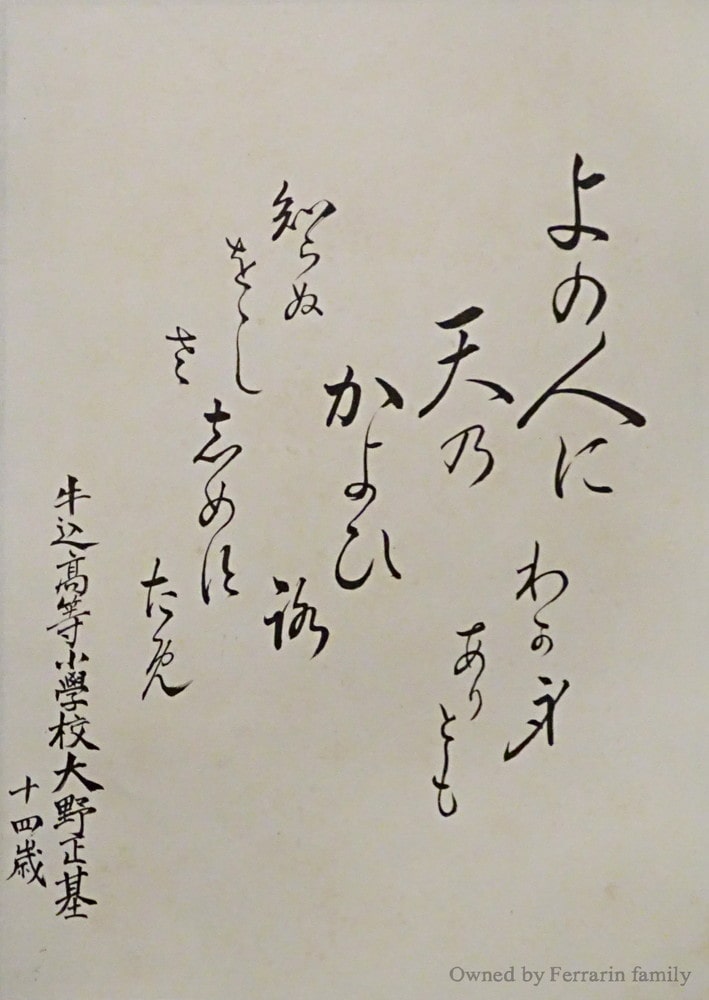 よの人に わか身
天乃 ありとも
かよひ
知らぬ 路
をゝし 志めす
さ ため
牛込高等小學校大野正基
十四歳
Owned by Ferrarin family